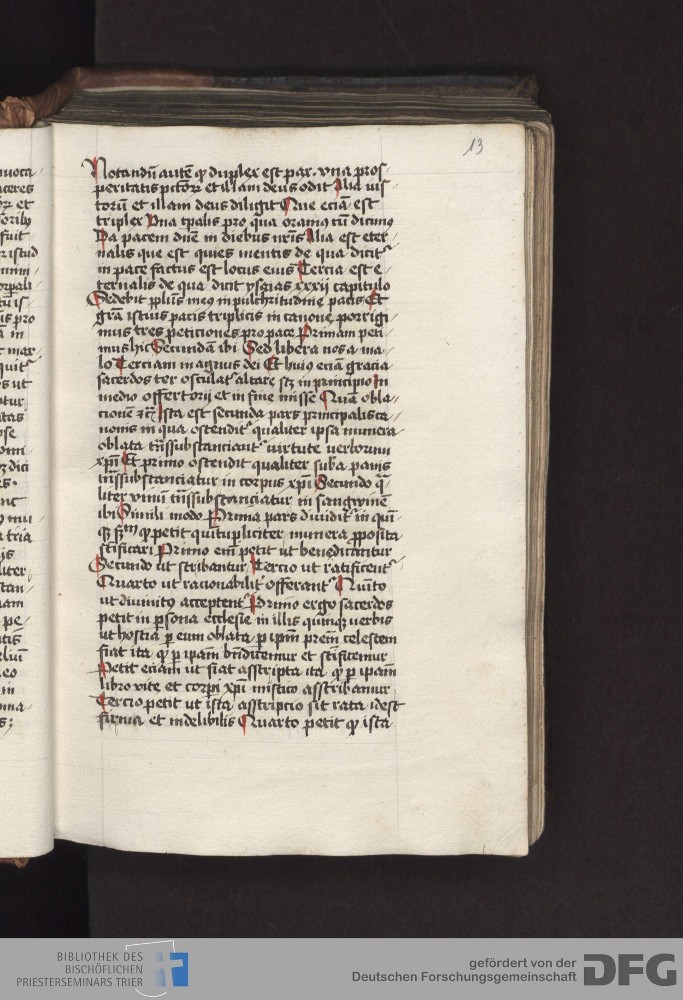 13
Notandū autē ꝙ duplex est pax. vna pros
peritatis pctorꝝ et illam deus odit Alia ius
torū et illam deus diligit Que eciā est
triplex Vna tpalis pro qua oramus cū dicimus
Da pacem dn̄e in diebus nr̄is Alia est eter
nalis que est quies mentis de qua dicit᷑
in pace factus est locus eius Tercia est e
ternalis de qua dicit ysaias xxxij capitulo
Sedebit ppl̄us meus in pulchritudine pacis Et
gr̄am istius pacis triplicis in canone porrigi
mus tres peticiones pro pace Primam peti
mus hic Secundā ibi Sed libera nos a ma
lo Terciam in agnus dei Et huius eciā gracia
sacerdos ter osculat᷑ altare scꝫ in principio In
medio offertorij et in fine misse Quā obla
cionē ⁊c̄ Ista est secunda pars principalis ca
nonis in qua ostendit᷑ qualiter ipsa munera
oblata trn̄ssubstanciant᷑ virtute verborum
xpi Et primo ostendit qualiter sub̄a panis
trn̄ssubstanciatur in corpus xpi Secundo q̄
liter vinū trn̄ssubstanciatur in sangwinē
ibi Simili modo Prima pars diuidit᷑ in quī
qꝫ ꝙ petit quītupliciter munera pposita
sc̄ificari Primo em̄ petit ut benedicantur
Secundo ut scribantur Tercio ut ratificent᷑
Quarto ut racionabilit᷑ offerant᷑ Quīto
ut diuinitus acceptent᷑ Primo ergo sacerdos
petit in psona ecclesie in illis quinqꝫ verbis
ut hostia p eum oblata p ipm̄ prēm celestem
fiat ita ꝙ p ipam bn̄dicemur et sc̄ificemur
Petit eciam ut fiat asscripta ita ꝙ p ipam
libro vite et corpi xpi mistico asscribamur
Tercio petit ut ista asscripcio sit rata idest
firma et indelibilis Quarto petit ꝙ ista
BIBLIOTHEK DES
BISCHÖFLICHEN
PRIESTERSEMINARS TRIER
gefördert von der
Deutschen Forschungsgemeinschaft
DFG